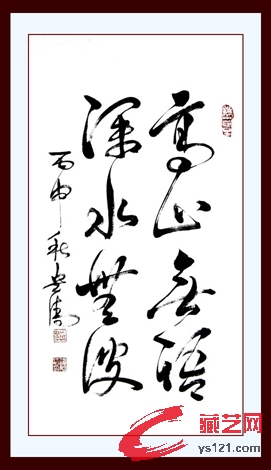 高山无语
深水無波
丙申秋
藏艺网
ys121.com